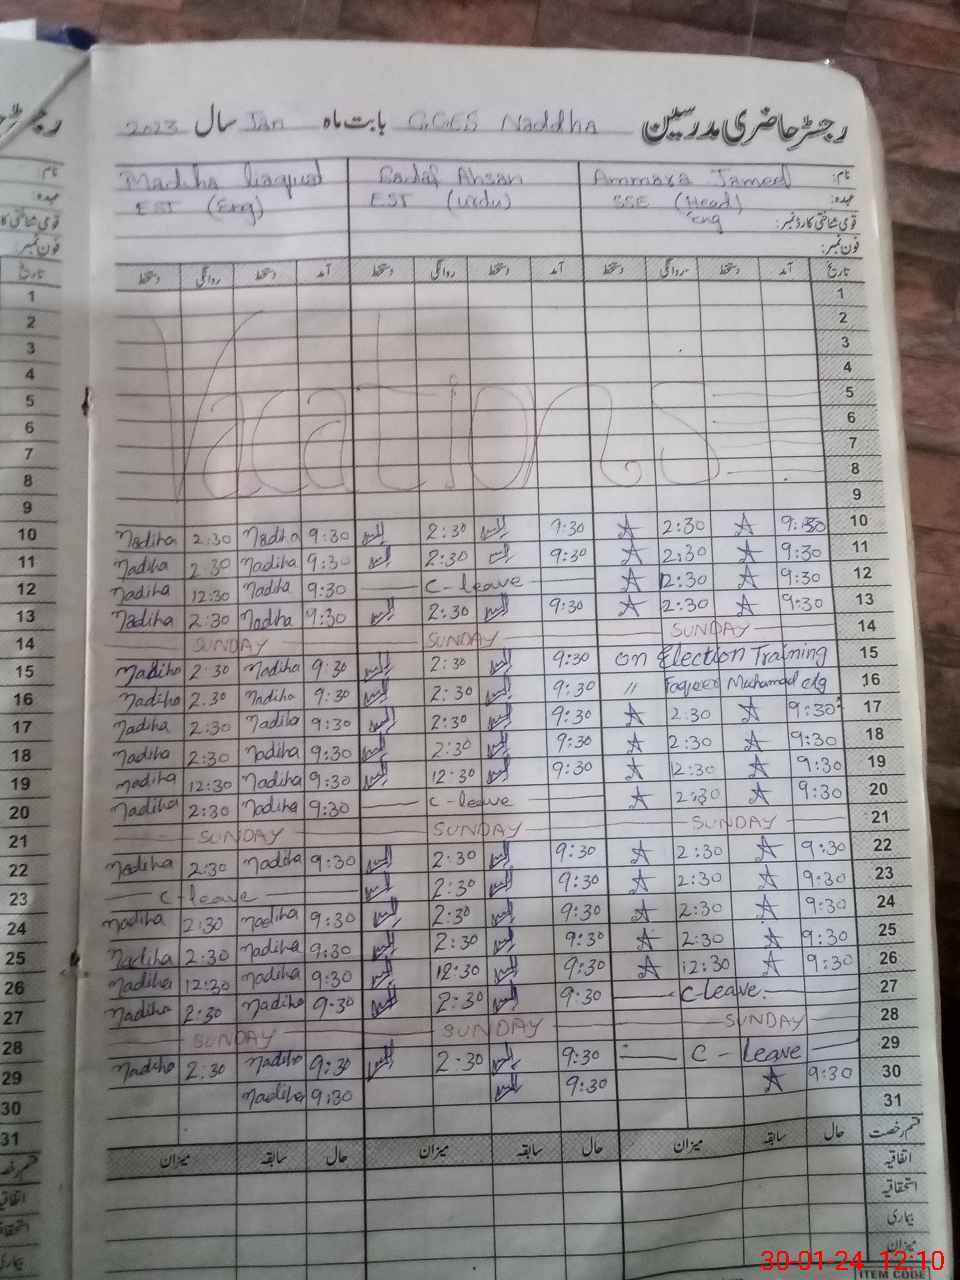 رجسٹر حاضری مدرسین G.G.E.S Naddha بابت ماہ Jan سال 2023
نام: Ammara Jameel Ahsan Madiha liaquat
عہدہ: SSE (Head) Eng EST (Urdu) EST (Eng)
قومی شناختی کارڈ نمبر:
فون نمبر:
تاریخ آمد دستخط روانگی دستخط آمد دستخط روانگی دستخط آمد دستخط روانگی دستخط
1
2
3
4
5
6
7
8
9
Vacations
Madiha 2:30 Madiha 9:30 2:30 9:30 2:30 9:30 10
Madiha 2:30 Madiha 9:30 2:30 9:30 2:30 9:30 11
Madiha 12:30 Madiha 9:30 C-leave 12:30 9:30 12
Madiha 2:30 Madha 9:30 2:30 9:30 2:30 9:30 13
SUNDAY SUNDAY SUNDAY 14
Madiha 2:30 Madiha 9:30 2:30 9:30 on Election Training 15
Madiha 2:30 Madiha 9:30 2:30 9:30 〃 Faqeer Muhamad clg 16
Madiha 2:30 Madiha 9:30 2:30 9:30 2:30 9:30 17
Madiha 2:30 Madiha 9:30 2:30 9:30 2:30 9:30 18
Madiha 12:30 Madiha 9:30 12:30 9:30 12:30 9:30 19
Madiha 2:30 Madiha 9:30 C-leave 2:30 9:30 20
SUNDAY SUNDAY SUNDAY 21
Madiha 2:30 Madiha 9:30 2:30 9:30 2:30 9:30 22
C-leave 2:30 9:30 2:30 9:30 23
Madiha 2:30 Madiha 9:30 2:30 9:30 2:30 9:30 24
Madiha 2:30 Madiha 9:30 2:30 9:30 2:30 9:30 25
Madiha 12:30 Madiha 9:30 12:30 9:30 12:30 9:30 26
Madiha 2:30 Madiha 9:30 2:30 9:30 C-leave. 27
SUNDAY SUNDAY SUNDAY 28
Madiha 2:30 Madiha 9:30 2:30 9:30 C-leave 29
Madiha 9:30 9:30 9:30 30
31
قسم رخصت حال سابقہ میزان حال سابقہ میزان حال سابقہ میزان
اتفاقیہ
استحقاقیہ
بیماری
میزان
30-01-24 12:10
ITEM CODE